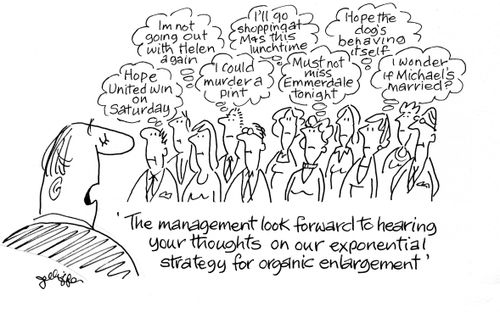 Im not
going out
with Helen
again
I'll go
shopping at
M&S this
lunchtime
Hope the
dog's
behaving
itself
Hope
United win
on
Saturday
I could
murder a
pint
Must not
miss
Emmerdale
tonight
I wonder
if Michael's
married?
'The management look forward to hearing
your thoughts on our exponential
strategy for organic enlargement'